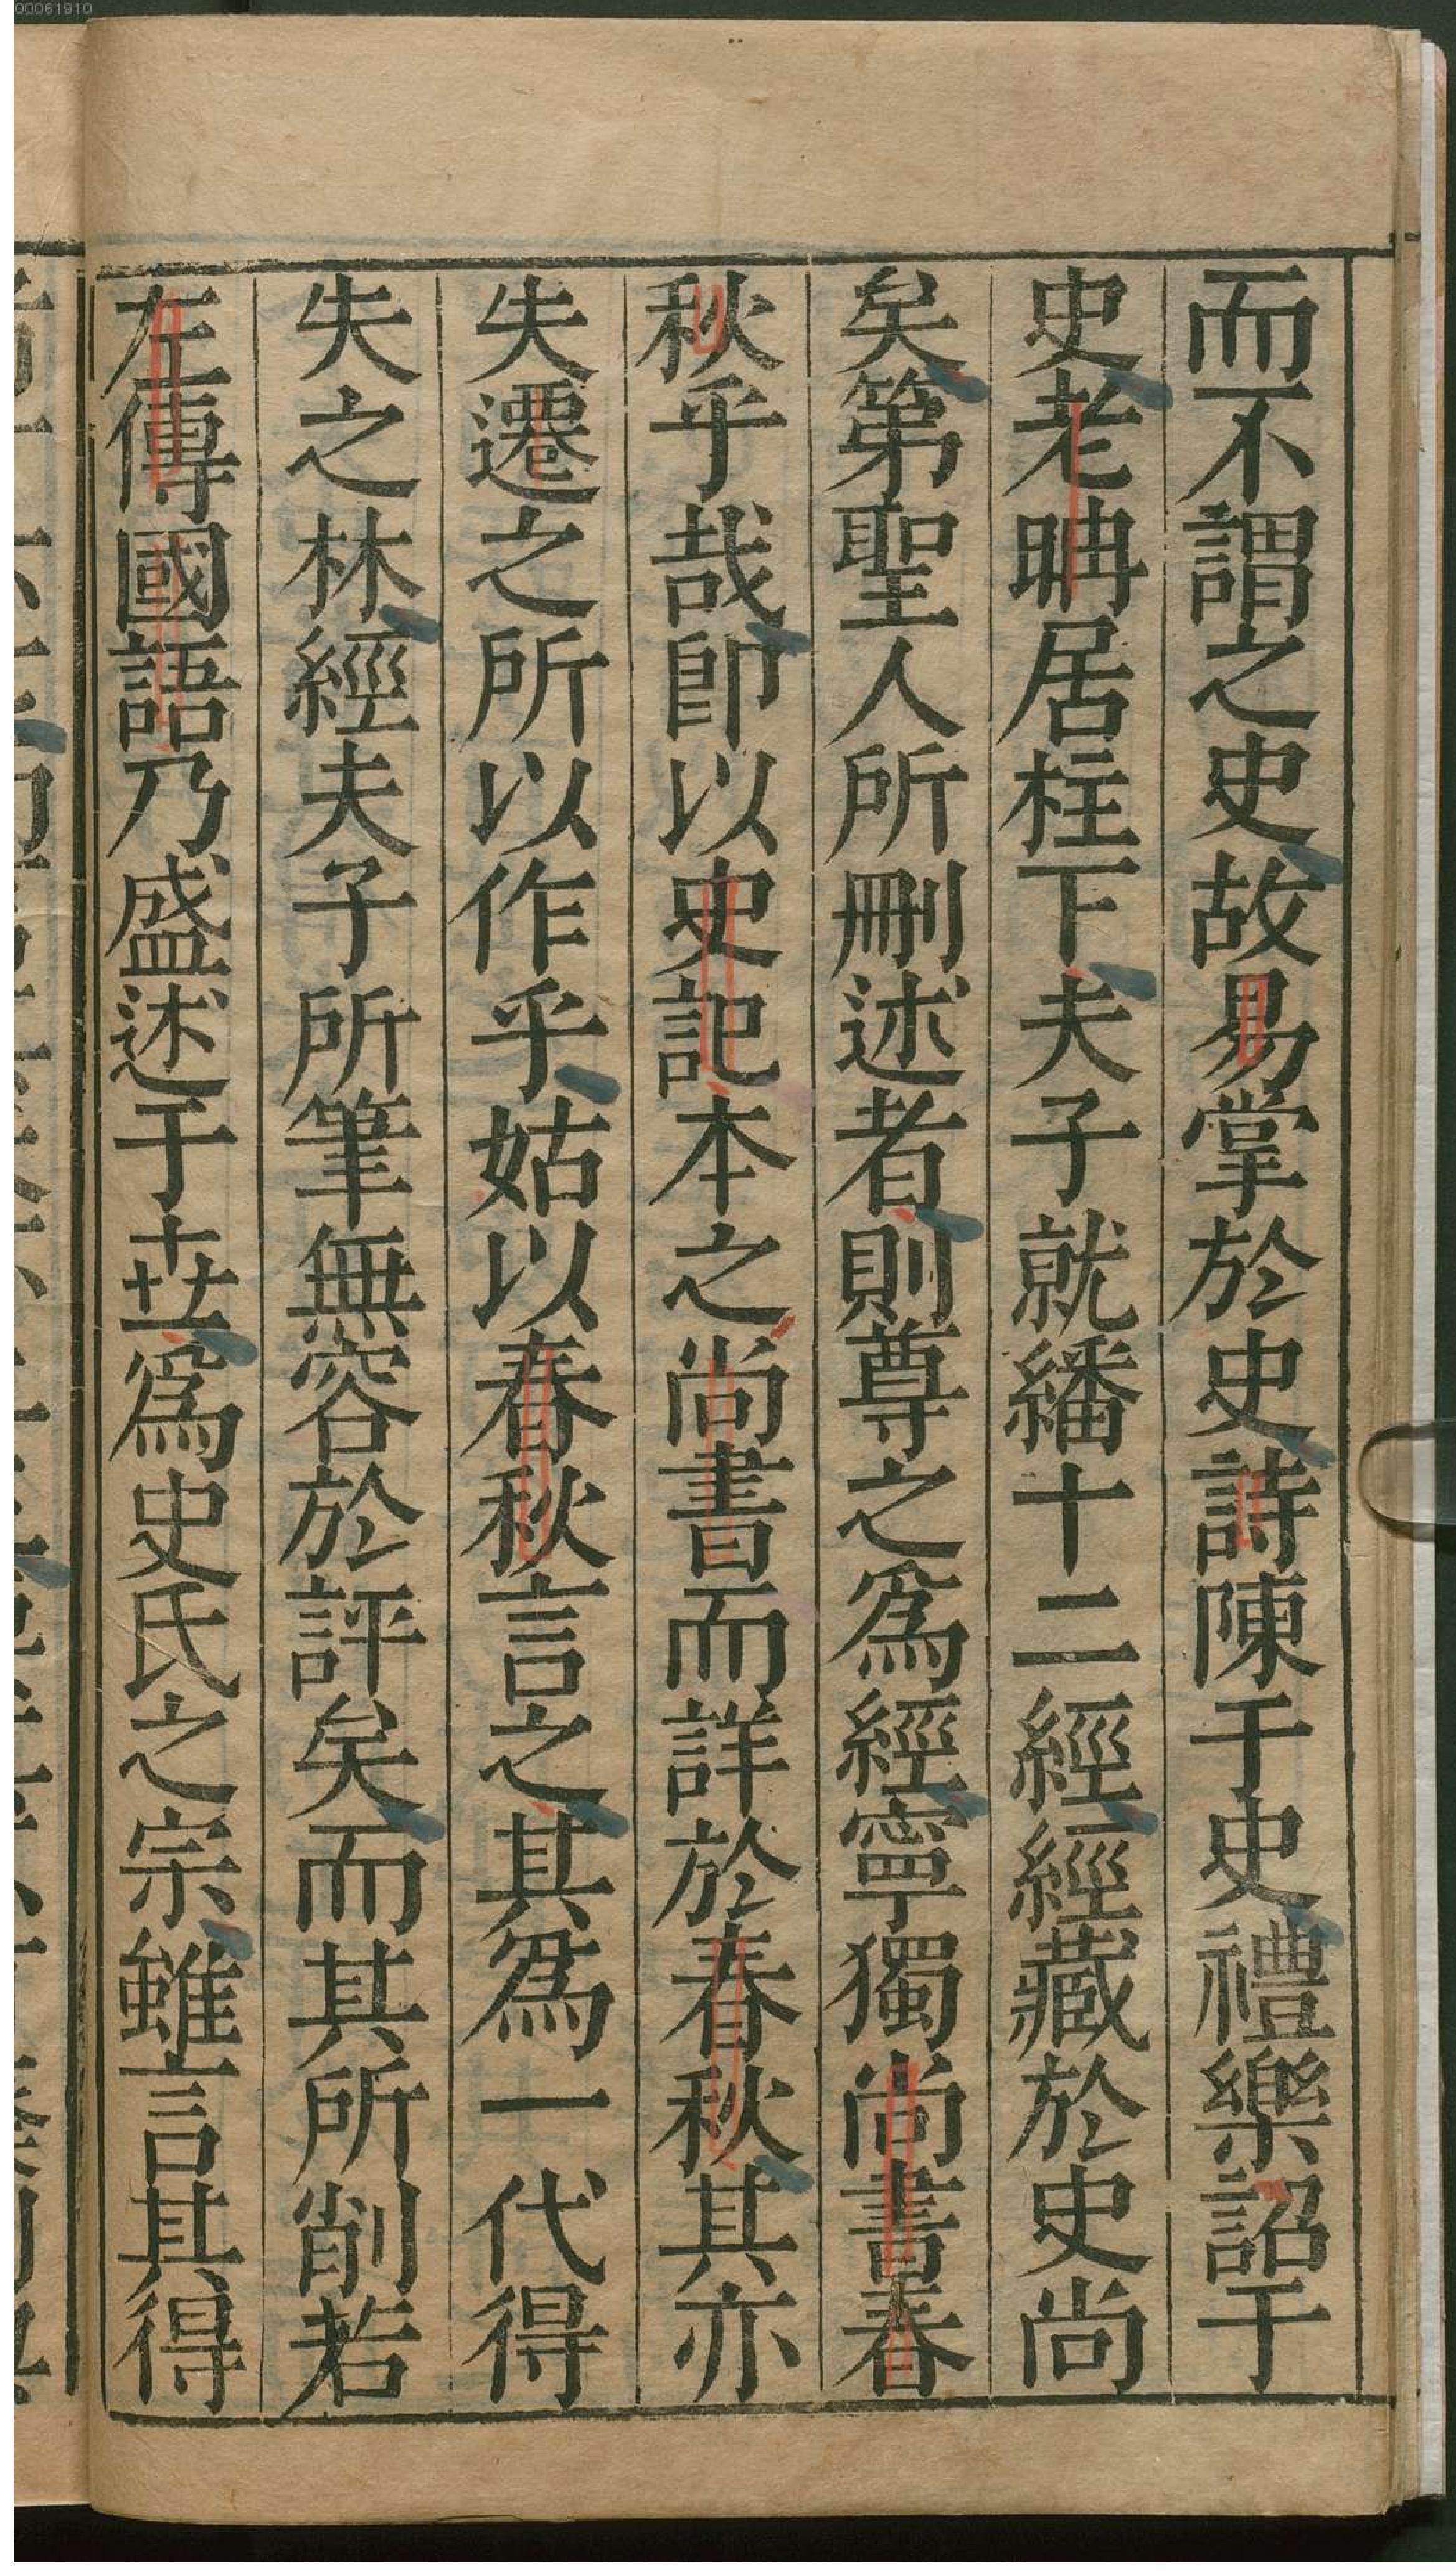 00061910
而不謂之史故易掌於史詩陳于史禮樂詔于
史老聃居柱下夫子就繙十二經經藏於史尚
矣第聖人所刪述者則尊之爲經寧獨尚書春
秋乎哉卽以史記本之尚書而詳於春秋其亦
失遷之所以作乎姑以春秋言之其爲一代得
失之林經夫子所筆無容於評矣而其所削若
左傳國語乃盛述于世爲史氏之宗雖言其得